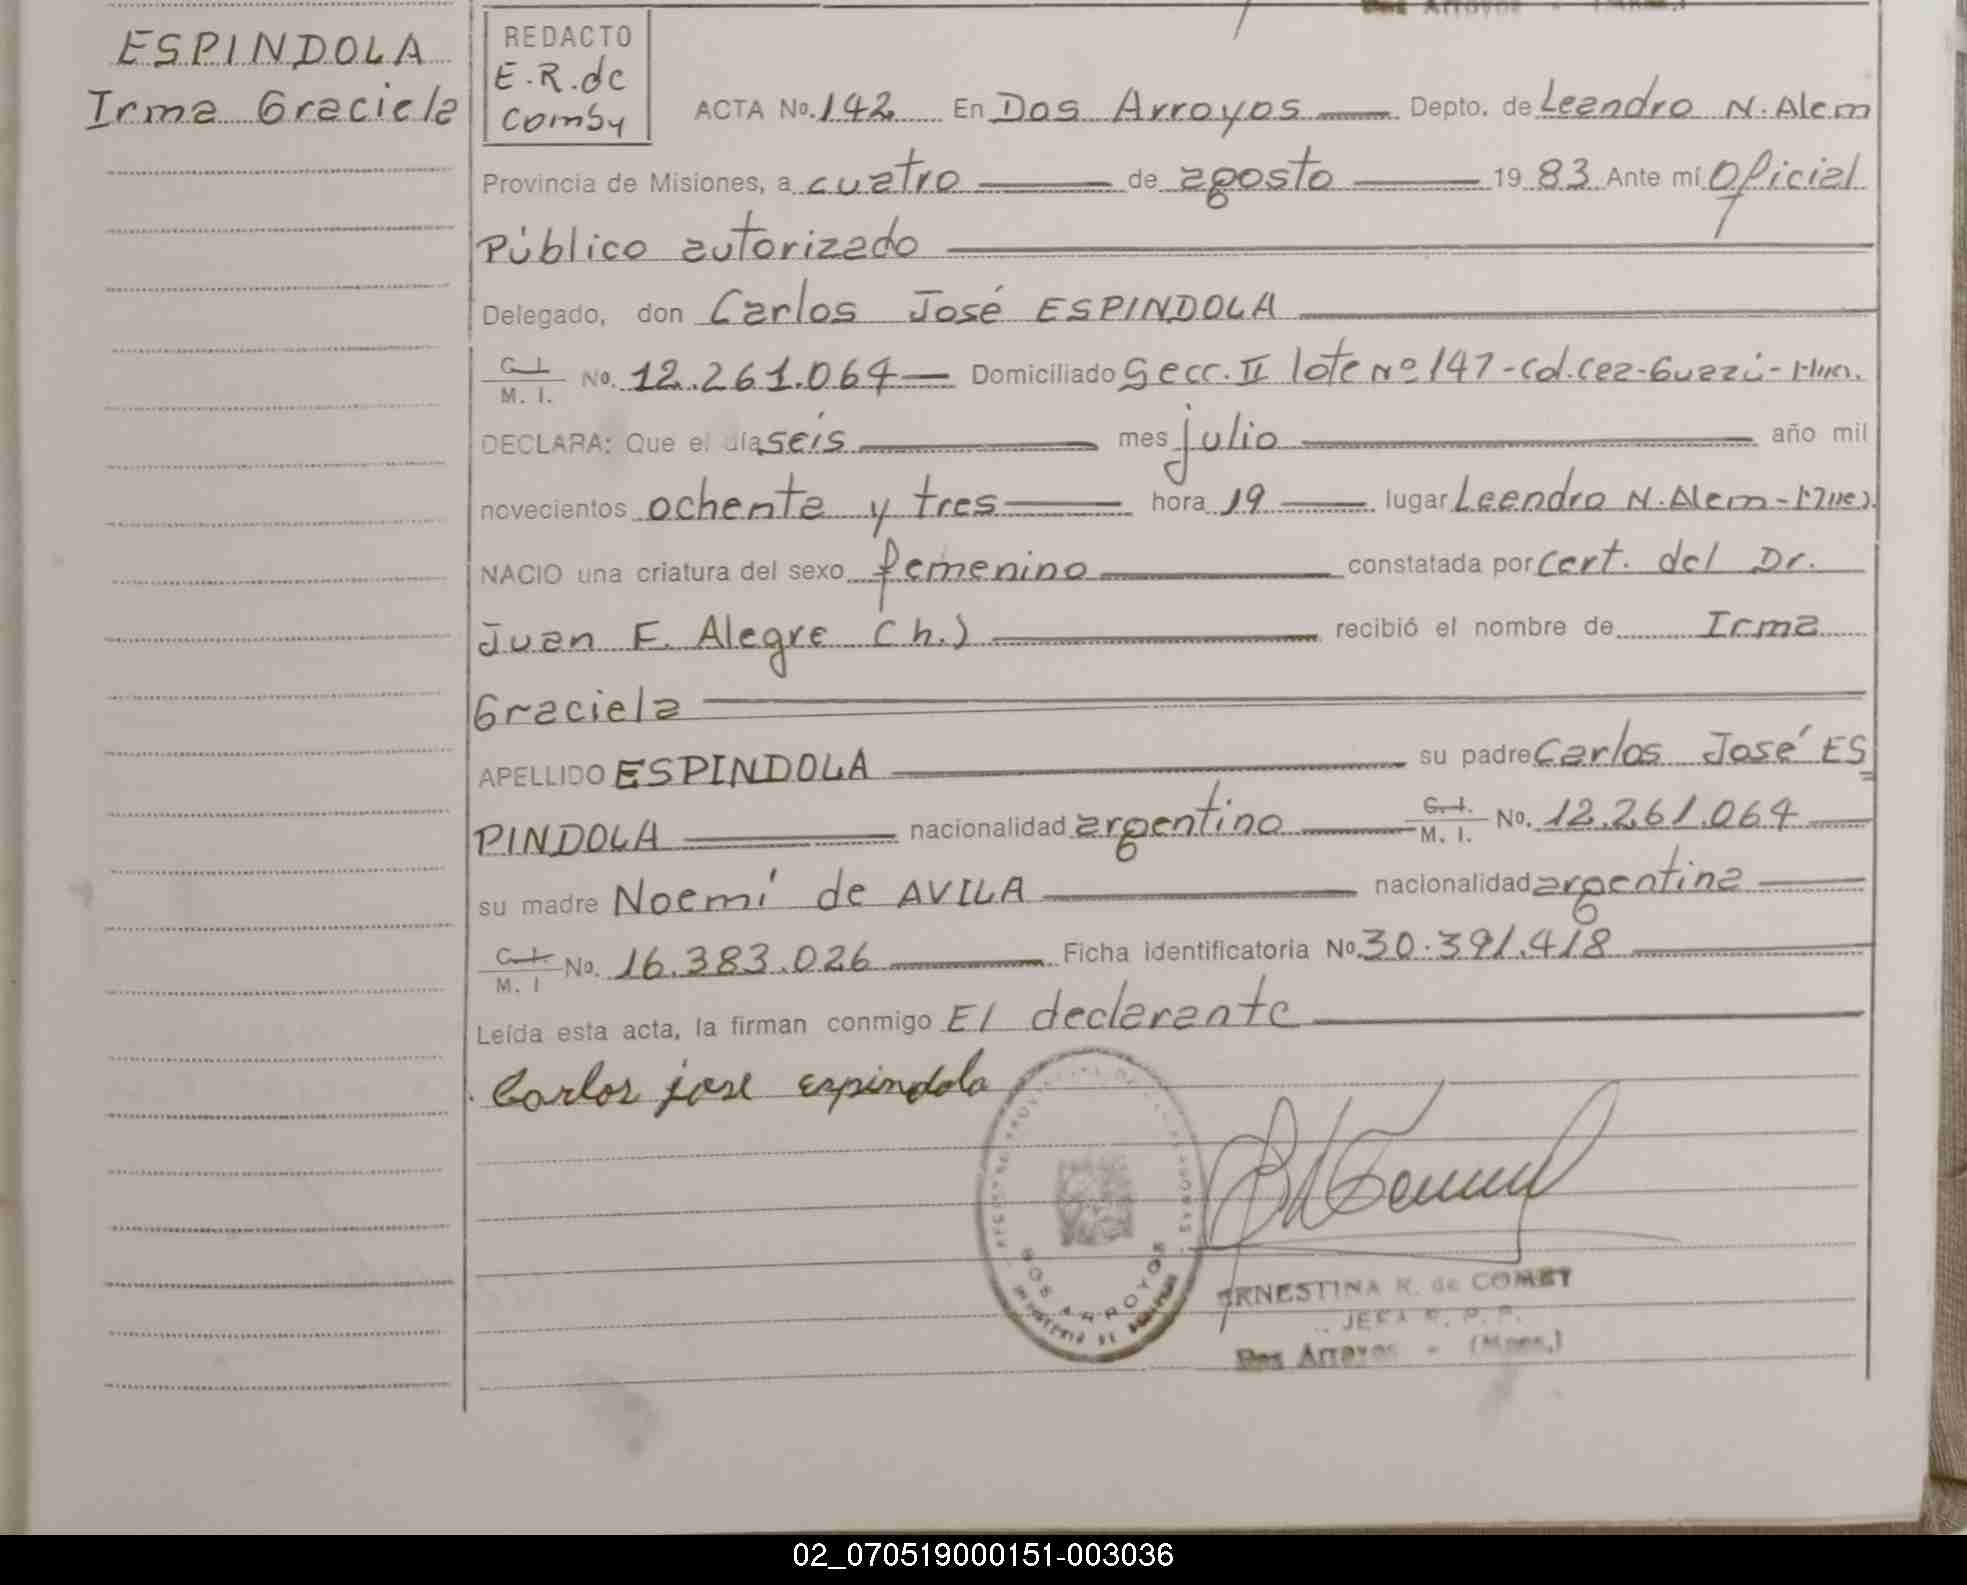 ESPINDOLA
Irma Graciela
REDACTO
E.R.de
Comby
ACTA No. 142 En Dos Arroyos Depto. de Leandro N. Alem
Provincia de Misiones, a cuatro de agosto 1983 Ante mí Oficial
Público autorizado
Delegado, don Carlos José ESPINDOLA
C. I.
M. I. No. 12.261.064 Domiciliado Secc. II lote Nº 147-Col.Caa-Guazú-
DECLARA: Que el día seis mes julio año mil
novecientos ochenta y tres hora 19 lugar Leandro N. Alem-
NACIO una criatura del sexo femenino constatada por cert. del Dr.
Juan F. Alegre (h.) recibió el nombre de Irma
Graciela
APELLIDO ESPINDOLA su padre Carlos José ES
PINDOLA nacionalidad argentino C. I. M. I. No. 12.261.064
su madre Noemí de AVILA nacionalidad argentina
C. I. M. I No. 16.383.026 Ficha identificatoria No. 30.391.418
Leída esta acta, la firman conmigo El declarante
Carlos jose espindola
DOS ARROYOS
ERNESTINA R. de COMBY
JEFA R. P. P.
Dos Arroyos - (Mnes.)
02_070519000151-003036